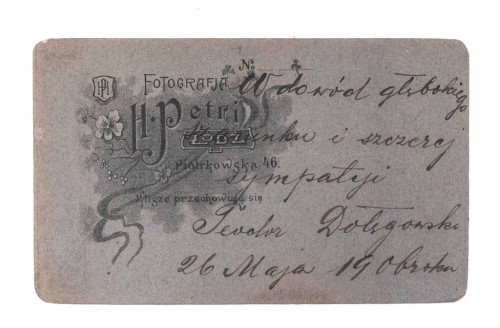 FOTOGRAFJA
No.
H. Petri
ŁÓDŹ
Piotrkowska 46.
Klisze przechowują się
W dowód głębokiego
szacunku i szczerej
sympatji
Teodor Dołęgowski
26 Maja 1906 roku